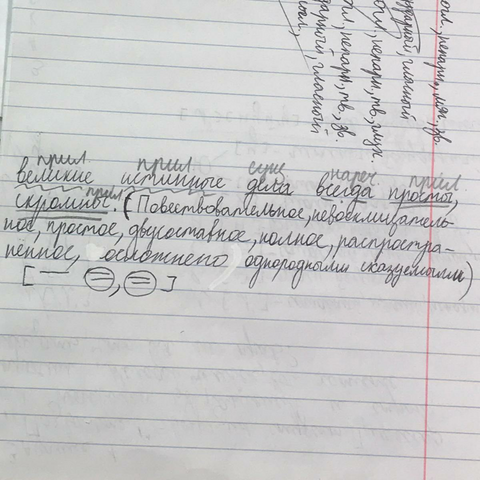 прил прил сущ нареч прил
великие истинные дела всегда просты,
прил
скромны. (Повествовательное, невосклицатель-
ное, простое, двусоставное, полное, распростра-
нённое, осложнено однородными сказуемыми)
[— =, =]
непарн., тв., зв.
гласный